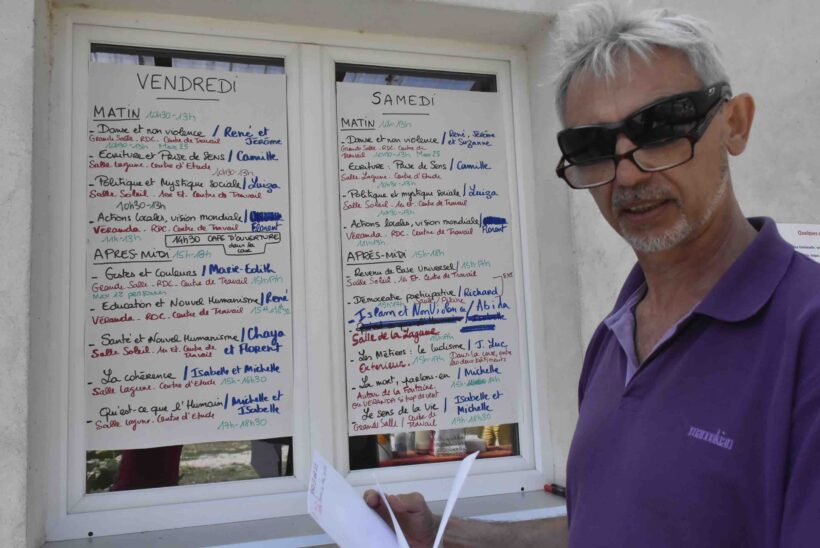 VENDREDI
MATIN 10H30-13H
- Danse et non violence / René et
Grande Salle - RDC. Centre de Travail Jérôme
10H30-13H
- Ecriture et Prise de Sens / Camille
Salle Lagune. Centre d'Etude
10H30-13H
- Politique et Mystique sociale / Luiza
Salle Soleil. 1er Et. Centre de Travail
10H30-13H
- Actions locales, vision mondiale /
VERANDA - RDC. Centre de Travail Florent
11H-13H
14H30 CAFE D'OUVERTURE
dans la
cour
APRES-MIDI 15H-18H
- Gestes et Couleurs / Marie-Edith
Grande Salle - RDC. Centre de Travail 15H-17H
Max 12 personnes
- Education et Nouvel Humanisme / René
VERANDA - RDC. Centre de Travail
- Santé et Nouvel Humanisme / Chaya
Salle Soleil. 1er Et. Centre de et Florent
Travail
- La cohérence / Isabelle et Michelle
Salle Lagune. Centre d'Etude 15H-16H30
- Qu'est-ce que l'Humain / Michelle et
Isabelle
Salle Lagune. Centre d'Etude
17H-18H30
SAMEDI
MATIN 11H-13H
- Danse et non violence / René, Jérôme
Grande Salle - RDC. Centre de et Suzanne
Travail 10H30-13H
- Ecriture : Prise de Sens / Camille
Salle Lagune. Centre d'Etude
10H30-13H
- Politique et mystique sociale / Luiza
Salle Soleil. 1er Et. Centre de Travail
10H30-13H
- Actions locales, vision mondiale /
VERANDA - RDC. Centre de Travail Florent
11H-13H
APRÈS-MIDI 15H-18H
- Revenu de Base Universel / 15H-17H
Salle Soleil. 1er Et. Centre de Travail
- Démocratie participative / Richard
- Islam et Non Violence / Abida
Salle de la Lagune
- Les Métiers : le ludisme / J. Luc
Exterieur. 15H-17H Dans la cour, entre
les deux bâtiments
- La mort, parlons-en / Michelle
Autour de la Fontaine 15H-17H
ou VERANDA si trop de vent
- Le Sens de la Vie / Isabelle et
Michelle
Grande Salle / Centre de
Travail 17H-18H30
mamukian